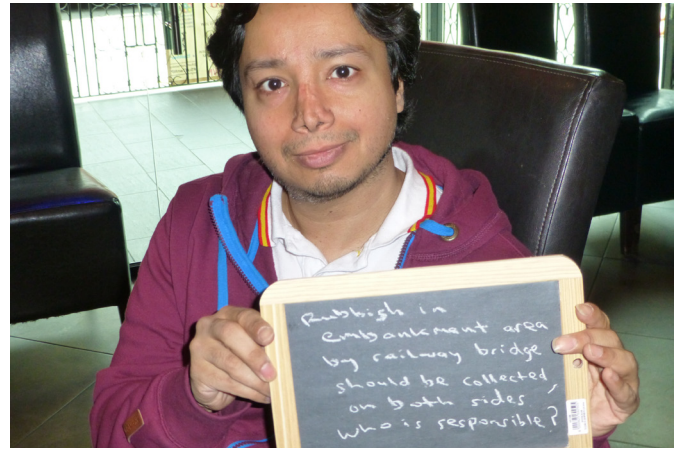 Rubbish in
embankment area
by railway bridge
should be collected,
on both sides,
who is responsible?